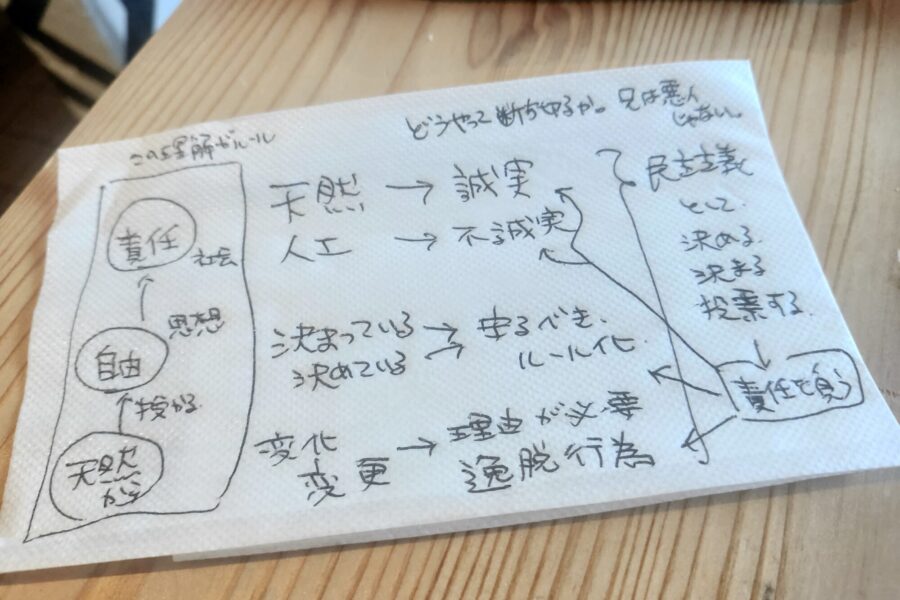 どうやって断ち切るか。兄は悪人
じゃない。
この理解がルール
責任
社会
↑
思想
自由
↑授かる
天然
から
天然 → 誠実
人工 → 不誠実
決まっている →
決めている →
守るべき、
ルール化
変化
変更
→ 理由が必要
逸脱行為
民主主義
として、
決める
決まる
投票する
↓
責任を負う